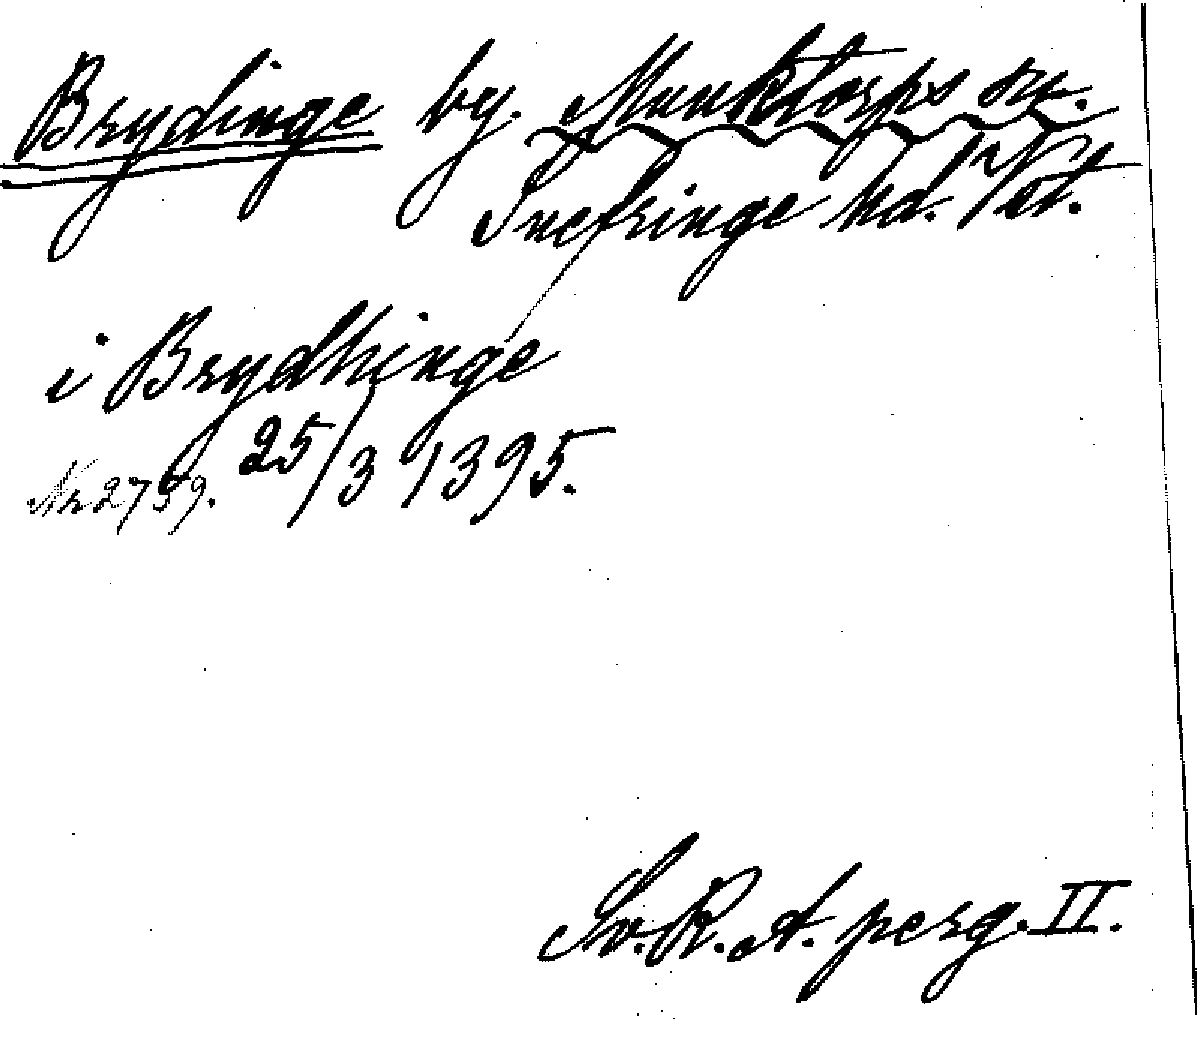 Brydinge by. Munktorps sn.
Snefringe hd. Vst.
i Brydhinge
25/3 1395.
Nr 2759.
Sv. R. A. perg. II.